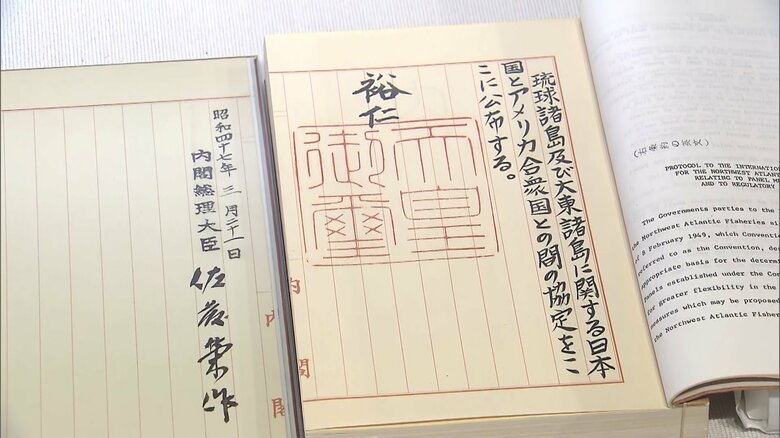 琉球諸島及び大東諸島に関する日本
国とアメリカ合衆国との間の協定をこ
こに公布する。
裕仁
天皇
御璽
内閣
昭和四十七年三月二十一日
内閣総理大臣
佐藤榮作
内閣
(右条約の英文)
PROTOCOL TO THE INTERNATIO
FOR THE NORTHWEST ATLANT
RELATING TO PANEL ME
AND TO REGULATORY
The Governments parties to the
the Northwest Atlantic Fisheries si
of 8 February 1949, which Convention
referred to as the Convention, des
appropriate basis for the determi
panels established under the Con
for greater flexibility in the
measures which may be proposed
the Northwest Atlantic Fisher